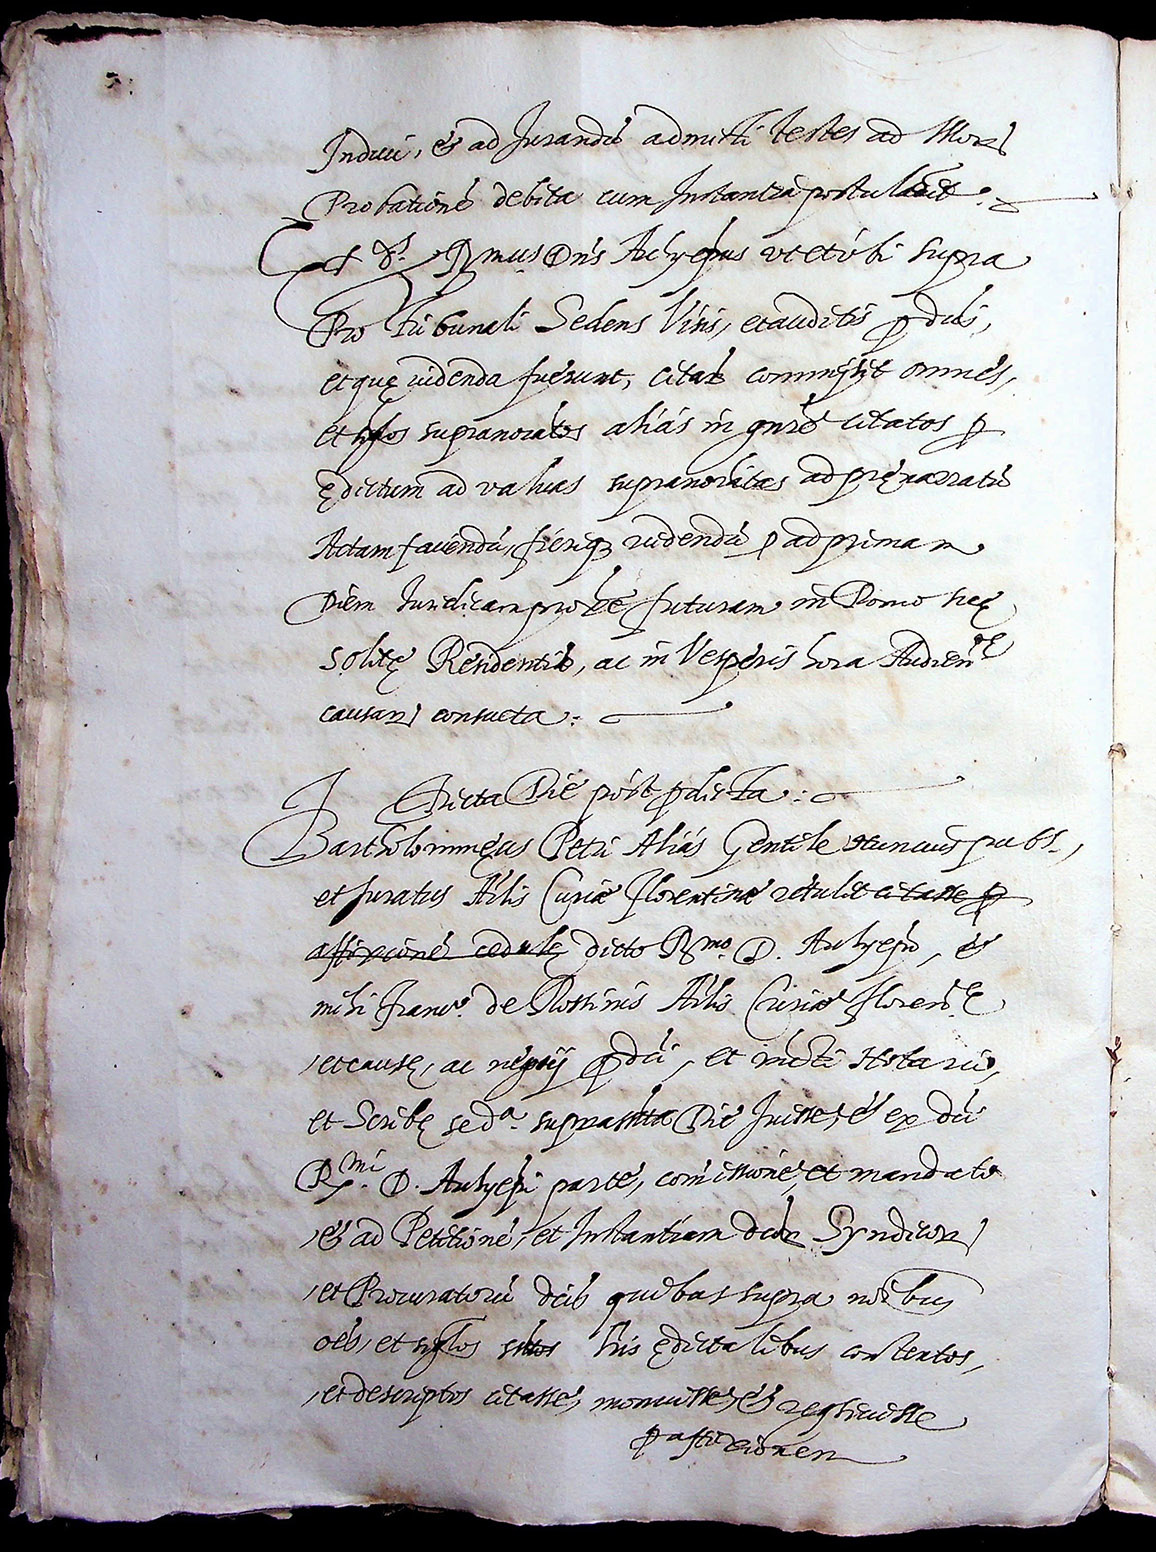 Induci, & ad Jurandū admitti testes ad
Probationē debita cum Instantia postulavit.
Rmus Dn̄s Archyepūs ut et ubi supra
Pro Tribunali Sedens Visis, et auditis p̄dcis,
et quę videnda fuerunt, citari commisit omnes,
et sup̄anotatos alias in citatos p
Edictum ad valvas supranotatas ad prenarratū
Actam faciendū, fieriq videndū p ad primam
Diem Juridicam proxe futuram in Domo suę
solitę Residentię, ac in Vesperis hora Audien
causarū consueta.
Dicta Die post p̄dicta.
Bartholommeus Petri Alias Gentile Nuncius pubs.,
et Juratus Curiæ Florentinæ retulit citasse p
affixionē cedulę dicto Rmo. D. Archyepō, &
mihi Franco de Rossinis Curiæ Floren
et causę, ac negoij p̄dcī, et Notario,
et Scribę se dā. suprascripta Die Juisse, & ex dcī
Rmi. D. Archyepī parte, comissione, et mandato
& ad Petitionē, et Instantiam Syndicor
et Procuratorū dcīs quibus supra noībus
oēs, et siglos edictalibus contentos,
et descriptos citasse, monuisse, & requisivisse
p affixionem